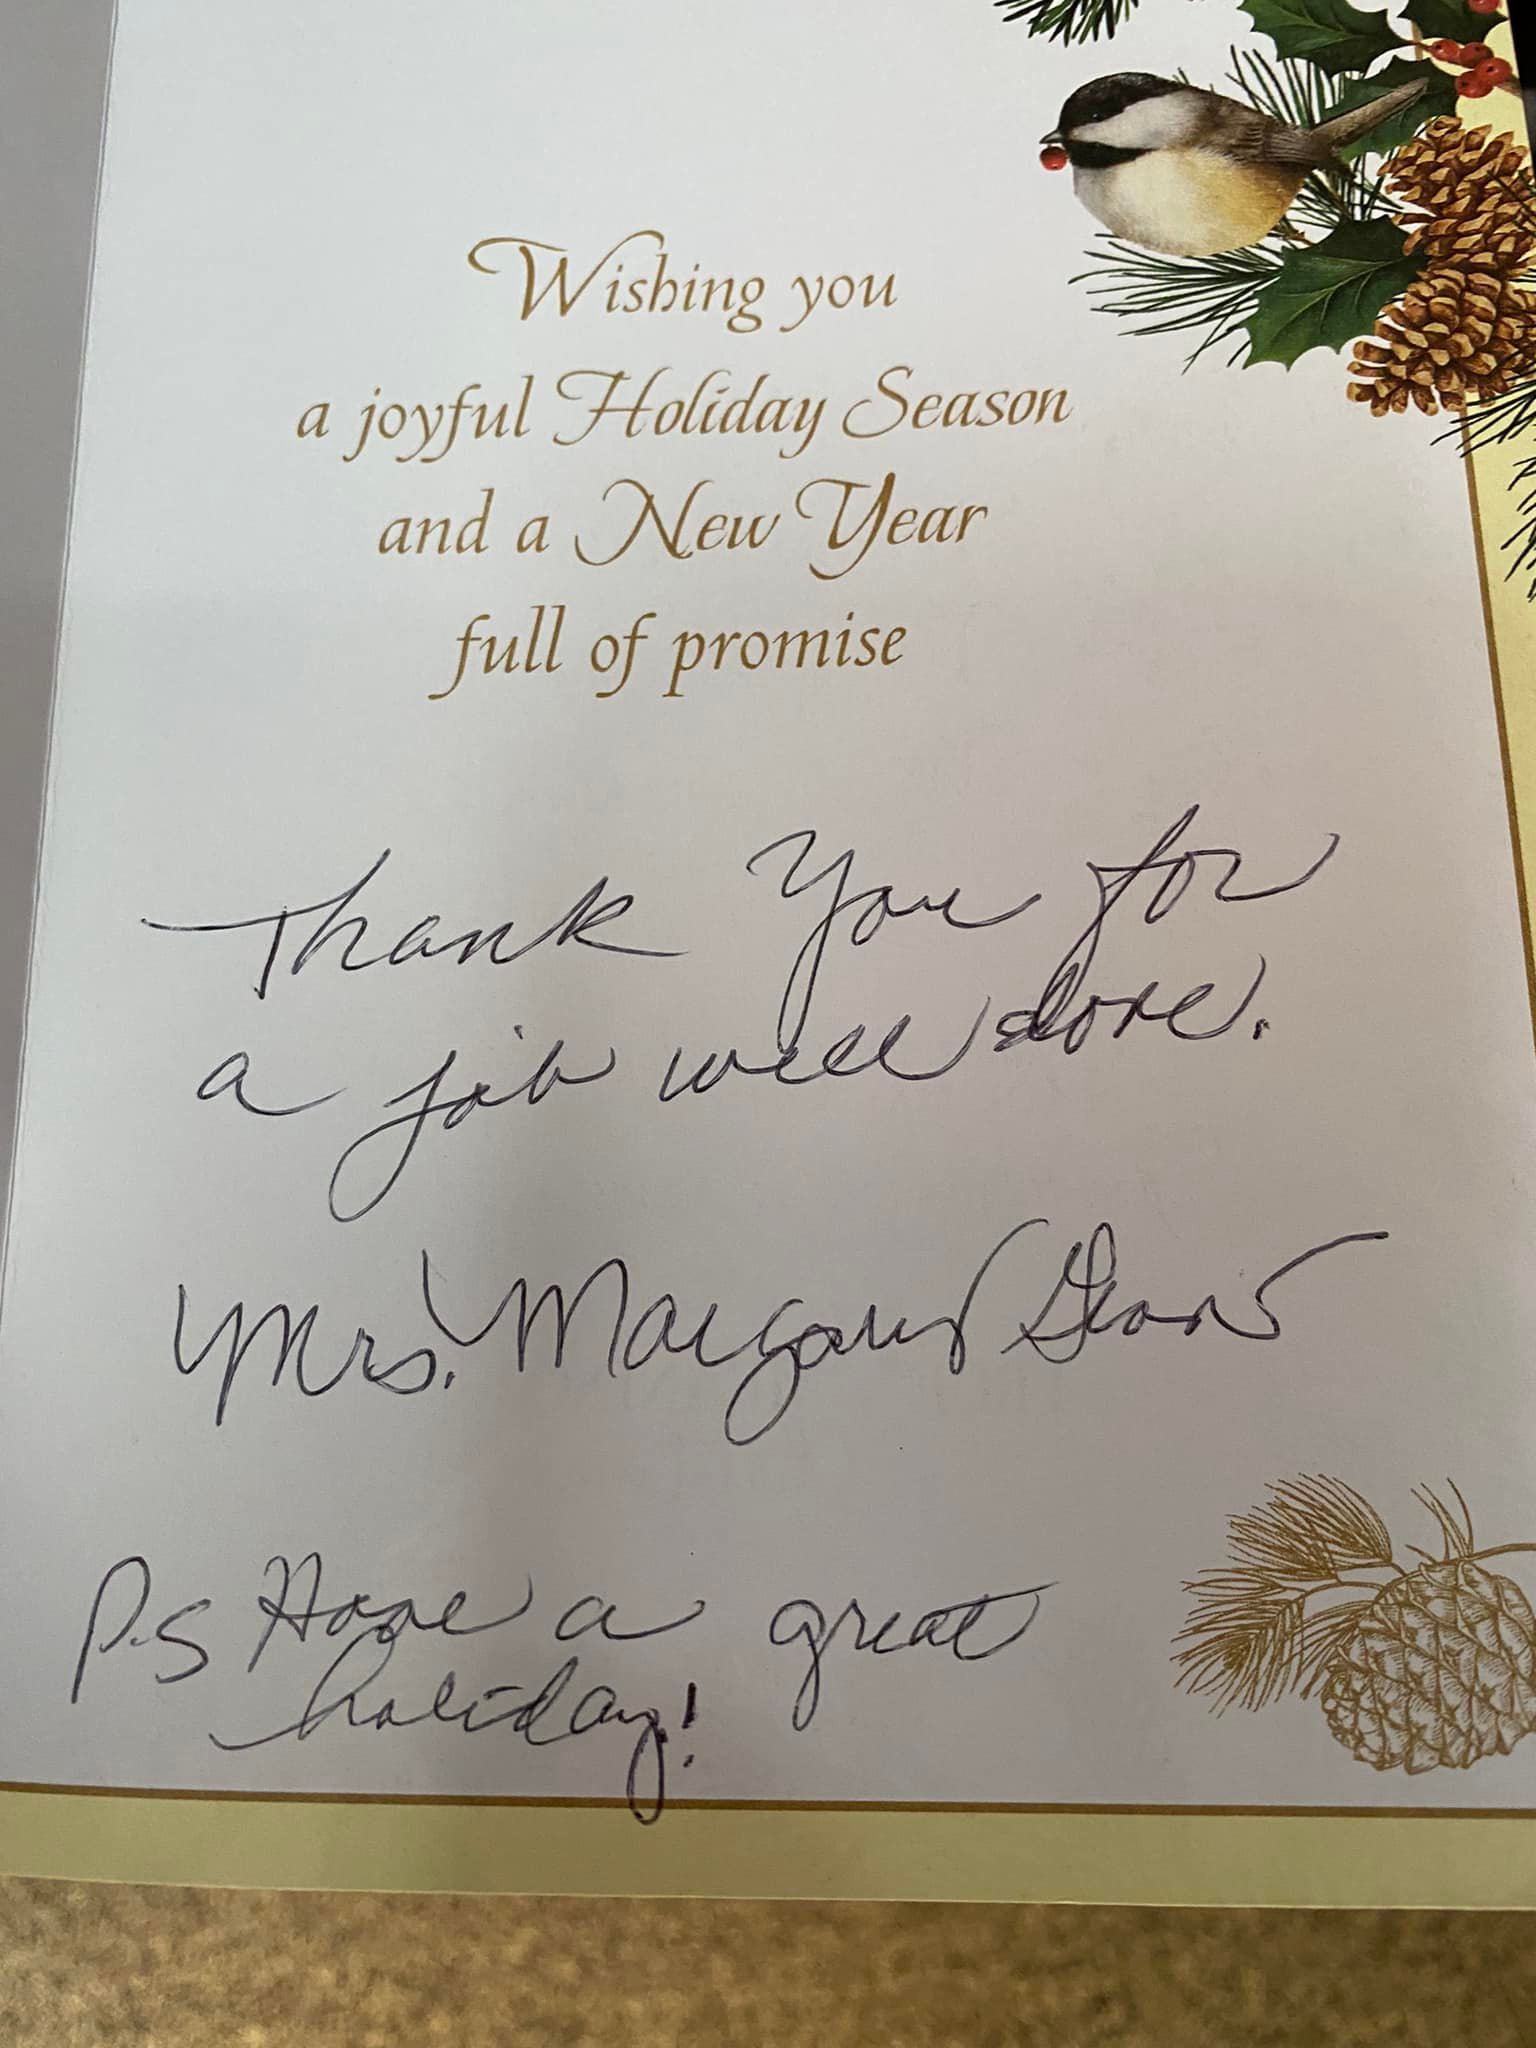 Wishing you
a joyful Holiday Season
and a New Year
full of promise
Thank You for
a job well done.
Mrs. Margaret
P.S Have a great
holiday!